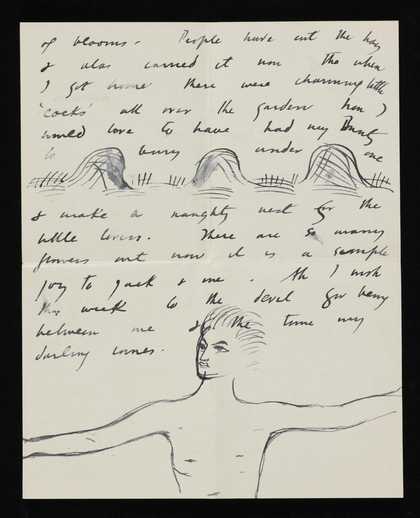 of blooms. People have cut the hay
& alas carried it now tho when
I got home there were charming little
'cocks' all over the garden how I
would love to have had my Bunty
to bury under one
& make a naughty nest for the
little lovers. There are so many
flowers out now it is a simple
joy to Jack & me. Ah I wish
this week to the devil for being
between me & the time my
darling comes.